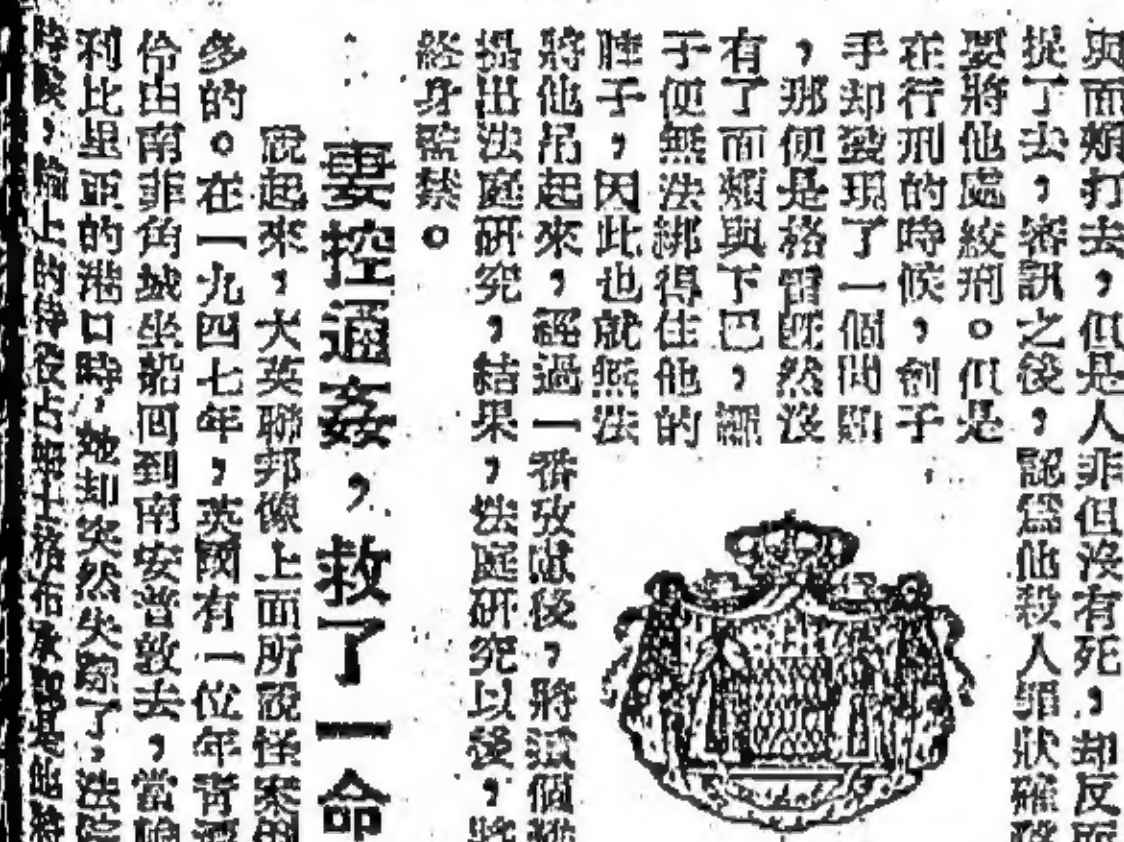 與面頰打去，但是人非但沒有死，却反而
捉了去，審訊之後，認爲他殺人罪狀確
要將他處絞刑。但是
在行刑的時候，劊子
手却發現了一個問題
，那便是格雷既然沒
有了面頰與下巴，繩
子便無法綁得住他的
脖子，因此也就無法
將他吊起來，經過一番攷慮後，將這個
提出法庭研究，結果，法庭研究以後，將
終身監禁。
妻控通姦，救了一命
說起來，大英聯邦像上面所說怪案
多的。在一九四七年，英國有一位年青
伶由南非角城坐船回到南安普敦去，當輪
利比里亞的港口時，她却突然失蹤了，法院
時候，輪上的侍役占姆士格布承認是他將